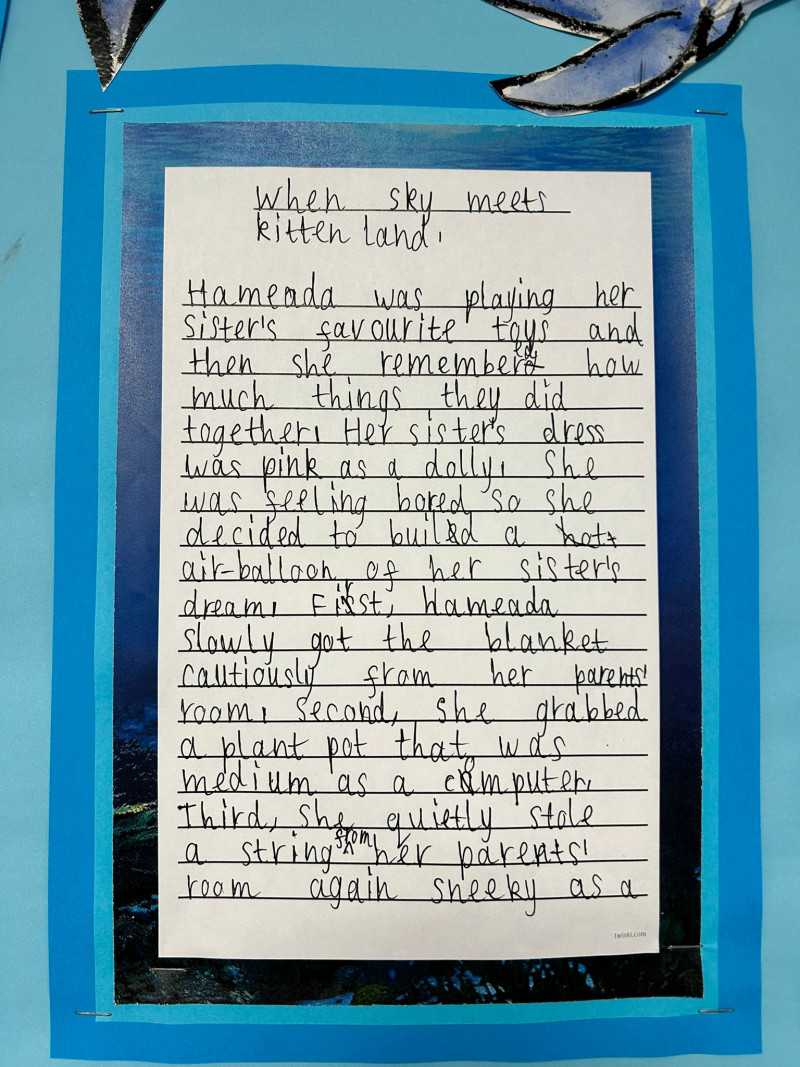 When sky meets
kitten land.
Hameada was playing her
sister's favourite toys and
then she remembered how
much things they did
together. Her sister's dress
was pink as a dolly. She
was feeling bored so she
decided to build a hot
air-balloon of her sister's
dream. First, Hameada
slowly got the blanket
cautiously from her parents'
room. Second, she grabbed
a plant pot that was
medium as a computer.
Third, she quietly stole
a string from her parents'
room again sneeky as a
twinkl.com